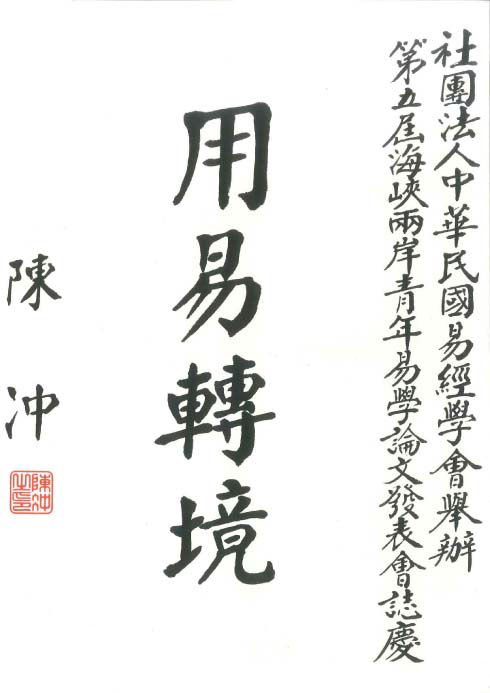 社團法人中華民國易經學會舉辦
第五屆海峽兩岸青年易學論文發表會誌慶
用易轉境
陳冲
陳冲之印